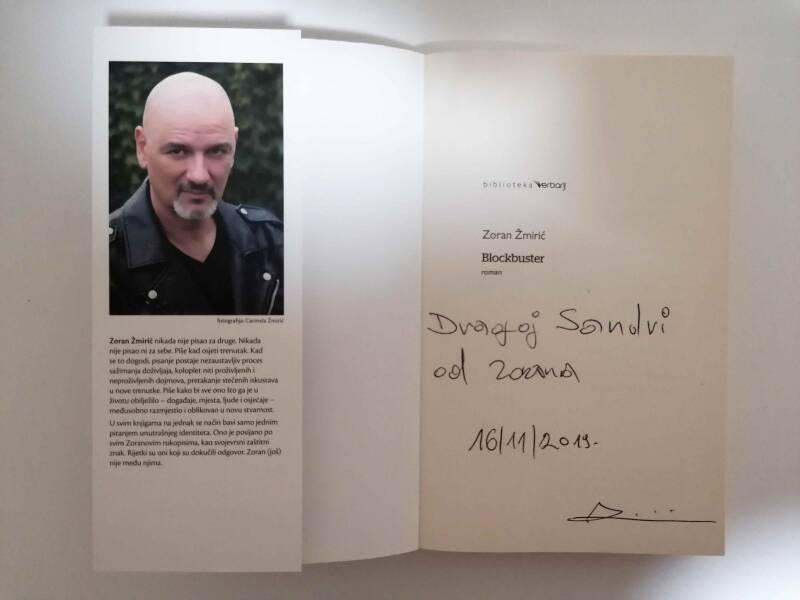 fotografija: Carmela Žmirić
Zoran Žmirić nikada nije pisao za druge. Nikada
nije pisao ni za sebe. Piše kad osjeti trenutak. Kad
se to dogodi, pisanje postaje nezaustavljiv proces
sažimanja doživljaja, koloplet niti proživljenih i
neproživljenih dojmova, pretakanje stečenih iskustava
u nove trenutke. Piše kako bi sve ono što ga je u
životu obilježilo – događaje, mjesta, ljude i osjećaje –
međusobno razmjestio i oblikovao u novu stvarnost.
U svim knjigama na jednak se način bavi samo jednim
pitanjem unutrašnjeg identiteta. Ono je posijano po
svim Zoranovim rukopisima, kao svojevrsni zaštitni
znak. Rijetki su oni koji su dokučili odgovor. Zoran (još)
nije među njima.
biblioteka Verbarij
Zoran Žmirić
Blockbuster
roman
Dragoj Sandri
od Zorana
16/11/2019.